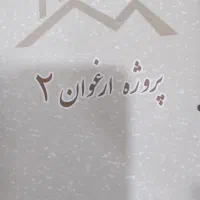 پروژه ارغوان ۲